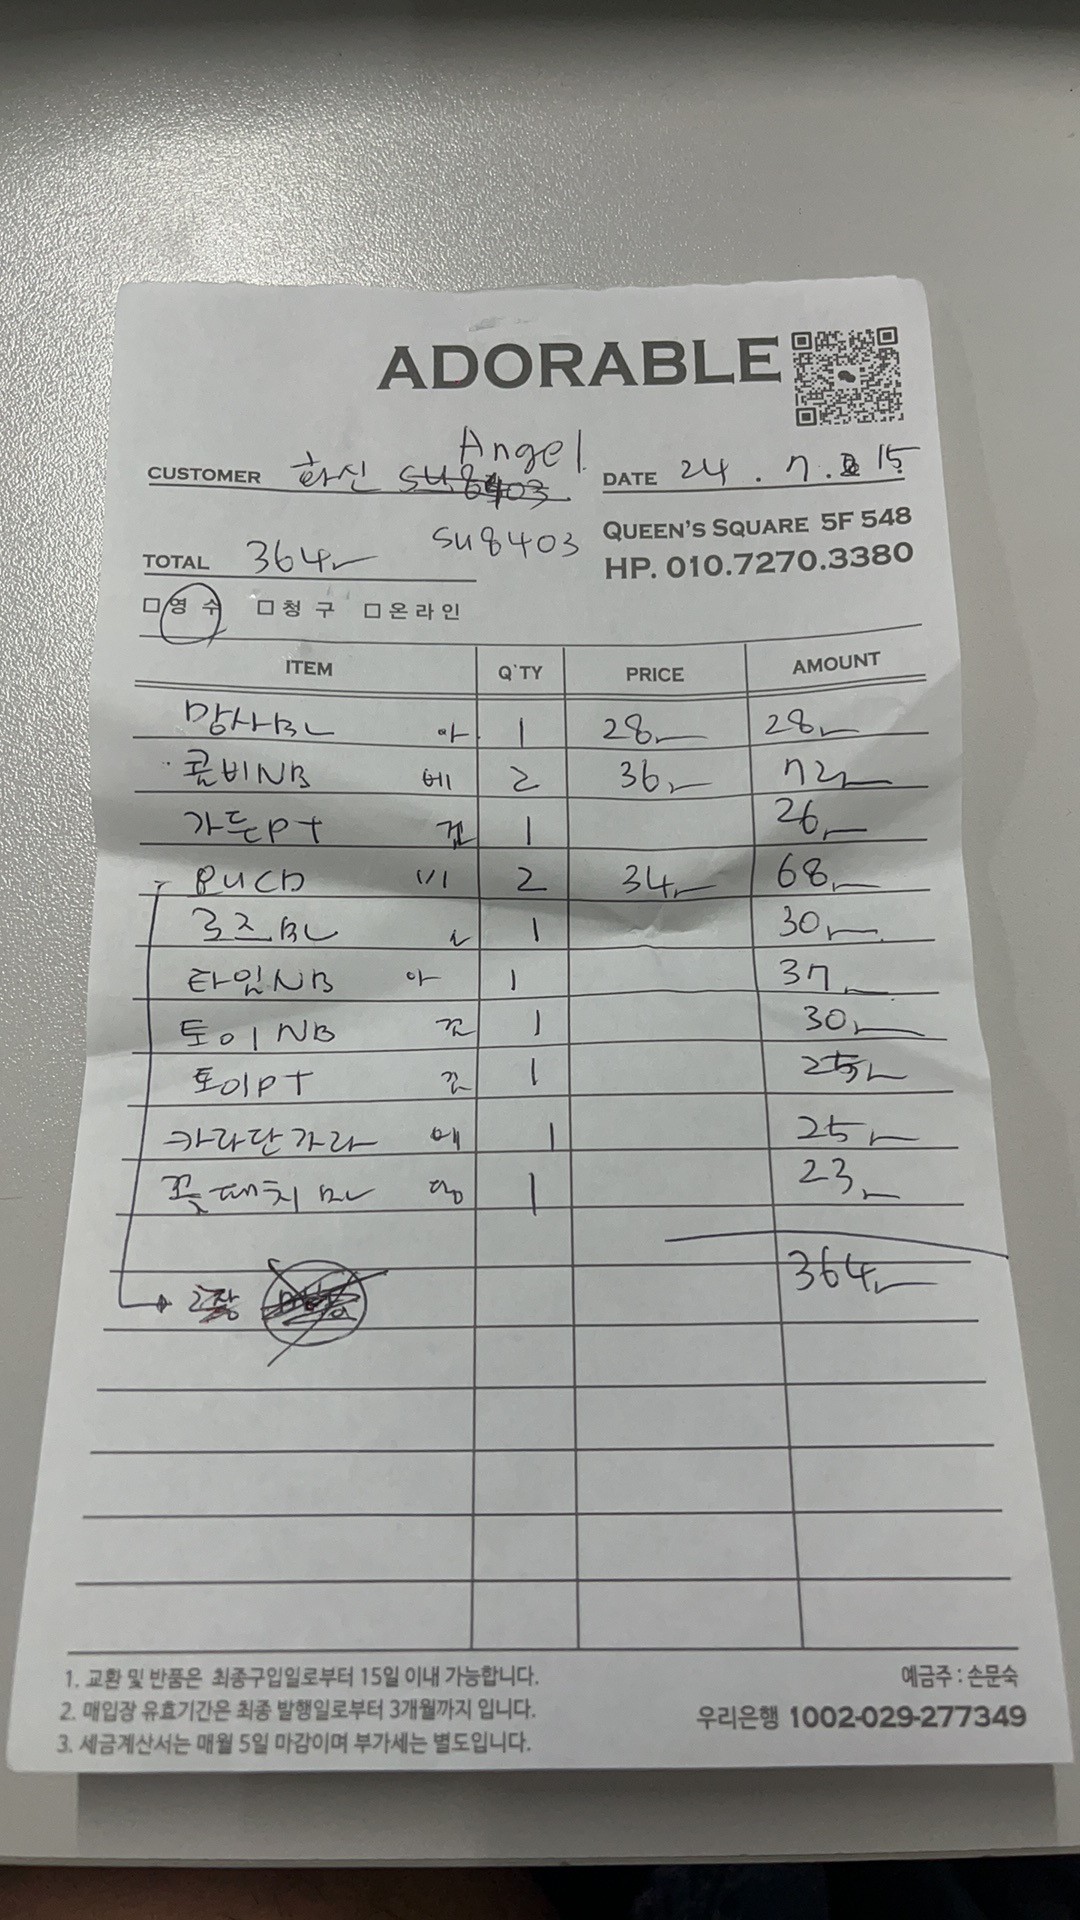 ADORABLE
Angel
CUSTOMER 화신 su8403 DATE 24 . 7 . 15
su8403
QUEEN'S SQUARE 5F 548
TOTAL 364
HP. 010.7270.3380
□ 영 수 □ 청 구 □ 온 라 인
ITEM Q'TY PRICE AMOUNT
망사BL 아 1 28 28
콤비NB 베 2 36 72
가든PT 1 26
PUCD 2 34 68
로즈BL 1 30
타임NB 아 1 37
토이NB 1 30
토이PT 1 25
카라단가라 베 1 25
꽃패치 1 23
364
2장
1. 교환 및 반품은 최종구입일로부터 15일 이내 가능합니다.
2. 매입장 유효기간은 최종 발행일로부터 3개월까지 입니다.
3. 세금계산서는 매월 5일 마감이며 부가세는 별도입니다.
예금주 : 손문숙
우리은행 1002-029-277349